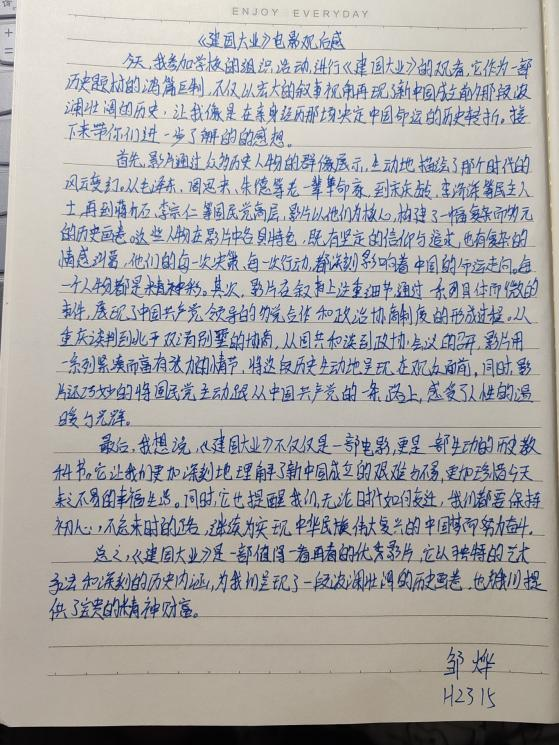 ENJOY EVERYDAY
《建国大业》电影观后感
今天,我参加学校的组织活动,进行《建国大业》的观看,它作为一部
历史题材的鸿篇巨制,不仅以宏大的叙事视角再现了新中国成立前夕那段波
澜壮阔的历史,让我像是在亲身经历那场决定中国命运的历史转折。接
下来带你们进一步了解的的感想。
首先,影片通过众多历史人物的群像展示,生动地描绘了那个时代的
风云变幻。从毛泽东、周恩来、朱德等老一辈革命家,到宋庆龄、李济深等民主人
士,再到蒋介石、李宗仁等国民党高层,影片以他们为核心,构建了一幅复杂而多元
的历史画卷。这些人物在影片中各具特色,既有坚定的信仰与追求,也有复杂的
情感纠葛,他们的每一次决策、每一次行动,都深刻影响着中国的命运走向。每
一个人物都是精神彩。其次,影片在叙事上注重细节,通过一系列具体而微的
事件,展现了中国共产党领导的多党合作和政治协商制度的形成过程。从
重庆谈判到北平双清别墅的协商,从国共和谈到政协会议的召开,影片用
一系列紧凑而富有张力的情节,将这段历史生动地呈现在观众面前,同时,影
片还巧妙的将国民党主动跟从中国共产党的一条路上,感受了人性的温
暖与光辉。
最后,我想说,《建国大业》不仅仅是一部电影,更是一部生动的历史教
科书。它让我们更加深刻地理解了新中国成立的艰难与不易,更加珍惜今天
来之不易的幸福生活。同时,它也提醒我们,无论时代如何变迁,我们都要保持
初心,不忘来时的路,继续为实现中华民族伟大复兴的中国梦而努力奋斗。
总之,《建国大业》是一部值得一看再看的优秀影片,它以独特的艺术
手法和深刻的历史内涵,为我们呈现了一段波澜壮阔的历史画卷,也给我们提
供了宝贵的精神财富。
邹烨
H2315